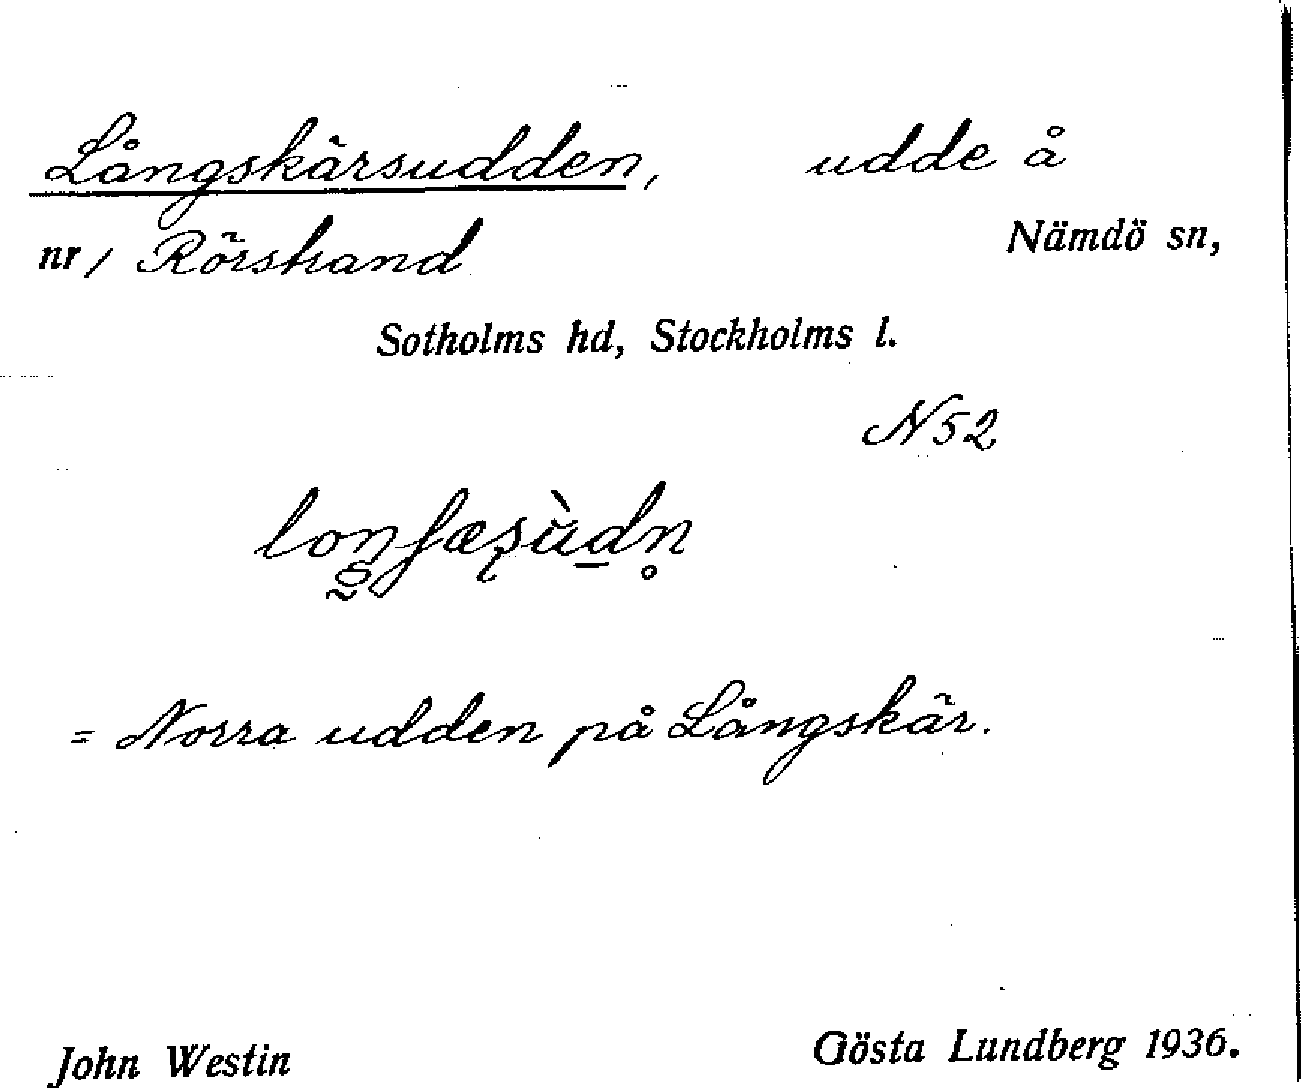 Långskärsudden, udde å
nr / Rörstrand Nämdö sn,
Sotholms hd, Stockholms l.
N 52
= Norra udden på Långskär.
John Westin Gösta Lundberg 1936.